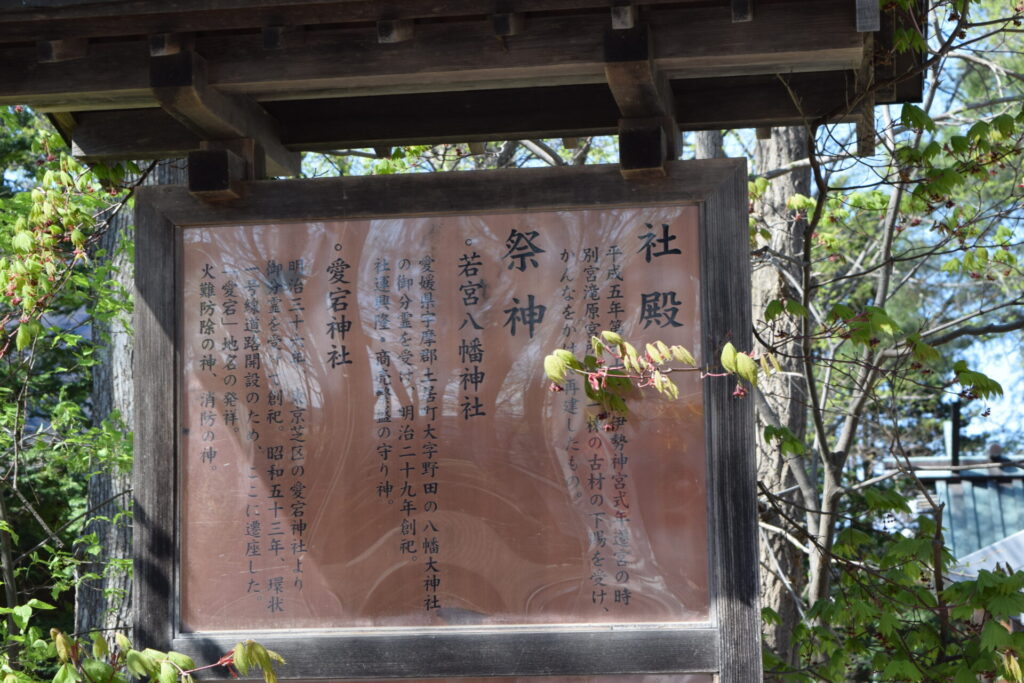 社殿
平成五年第 伊勢神宮式年遷宮の時
別宮滝原宮 の古材の下賜を受け、
かんなをかけ 再建したもの。
祭神
。若宮八幡神社
愛媛県宇摩郡土居町大字野田の八幡大神社
の御分霊を受け、明治二十九年創祀。
社運興隆・商売繁盛の守り神。
。愛宕神社
明治三十 年 東京芝区の愛宕神社より
御分霊を受けて創祀。昭和五十三年、環状
一号線道路開設のため、ここに遷座した。
「愛宕」地名の発祥。
火難防除の神、消防の神。